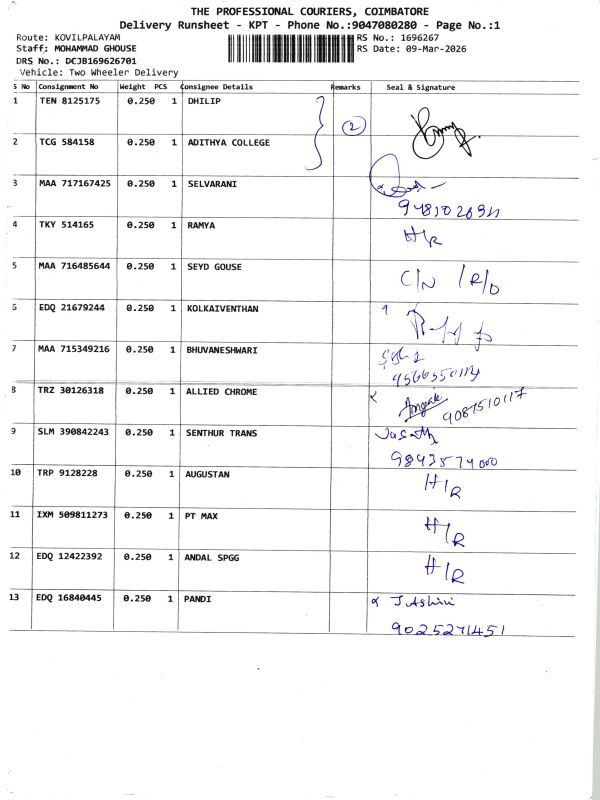 THE PROFESSIONAL COURIERS, COIMBATORE
Delivery Runsheet - KPT - Phone No.:9047080280 - Page No.:1
Route: KOVILPALAYAM RS No.: 1696267
Staff: MOHAMMAD GHOUSE RS Date: 09-Mar-2026
DRS No.: DCJB169626701
Vehicle: Two Wheeler Delivery
S No Consignment No Weight PCS Consignee Details Remarks Seal & Signature
1 TEN 8125175 0.250 1 DHILIP
2
2 TCG 584158 0.250 1 ADITHYA COLLEGE
3 MAA 717167425 0.250 1 SELVARANI
4 TKY 514165 0.250 1 RAMYA H/R
5 MAA 716485644 0.250 1 SEYD GOUSE C/N / R/O
6 EDQ 21679244 0.250 1 KOLKAIVENTHAN
7 MAA 715349216 0.250 1 BHUVANESHWARI
8 TRZ 30126318 0.250 1 ALLIED CHROME
9087510117
9 SLM 390842243 0.250 1 SENTHUR TRANS
9843574000
10 TRP 9128228 0.250 1 AUGUSTAN H/R
11 IXM 509811273 0.250 1 PT MAX H/R
12 EDQ 12422392 0.250 1 ANDAL SPGG H/R
13 EDQ 16840445 0.250 1 PANDI J Ashini
9025271451